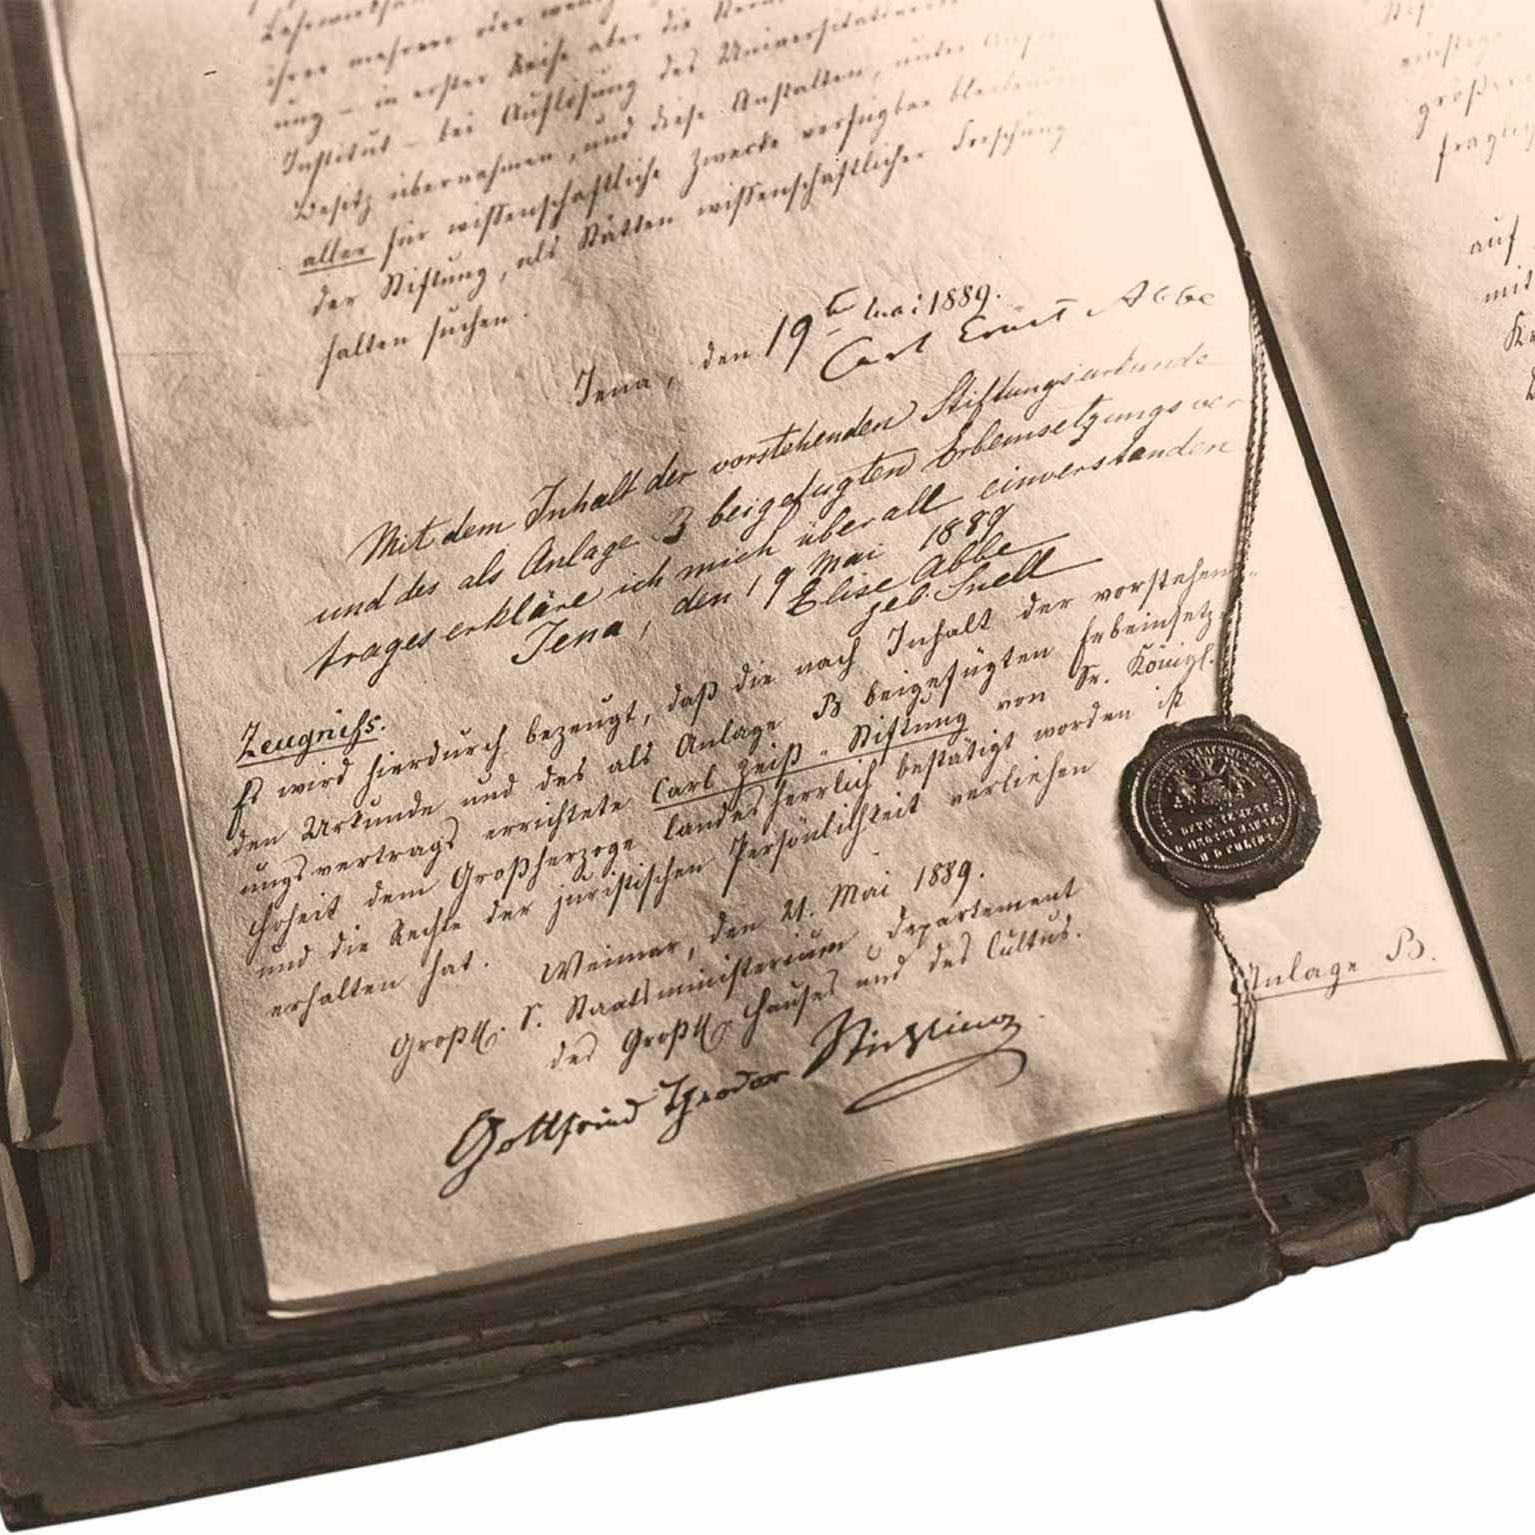 ihren mehrere oder
ung – in erster Reihe aber die
Institut – bei Auflösung des Universitäts
Besitz übernehmen, und diese Anstalten, unter
aller für wissenschaftliche Zwecke verfügbar bleibenden
der Stiftung, als Stätten wissenschaftlicher Forschung
halten suchen.
Jena, den 19ten Mai 1889.
Carl Ernst Abbe
Mit dem Inhalt der vorstehenden Stiftungsurkunde
und des als Anlage B beigefügten Erbeinsetzungsver
trages erkläre ich mich überall einverstanden
Jena, den 19 Mai 1889
Elise Abbe
geb. Snell
Zeugniß.
Es wird hierdurch bezeugt, daß die nach Inhalt der vorstehen-
den Urkunde und des als Anlage B beigefügten Erbeinsetz-
ungsvertrags errichtete Carl Zeiß-Stiftung von Sr. Königl.
Hoheit dem Großherzoge landesherrlich bestätigt worden ist
und die Rechte der juristischen Persönlichkeit verliehen
erhalten hat.
Weimar, den 21. Mai 1889.
Großh. S. Staatsministerium, Departement
des Großh. Hauses und des Cultus.
Gottfried Theodor Stichling
Anlage B.
auf
mit